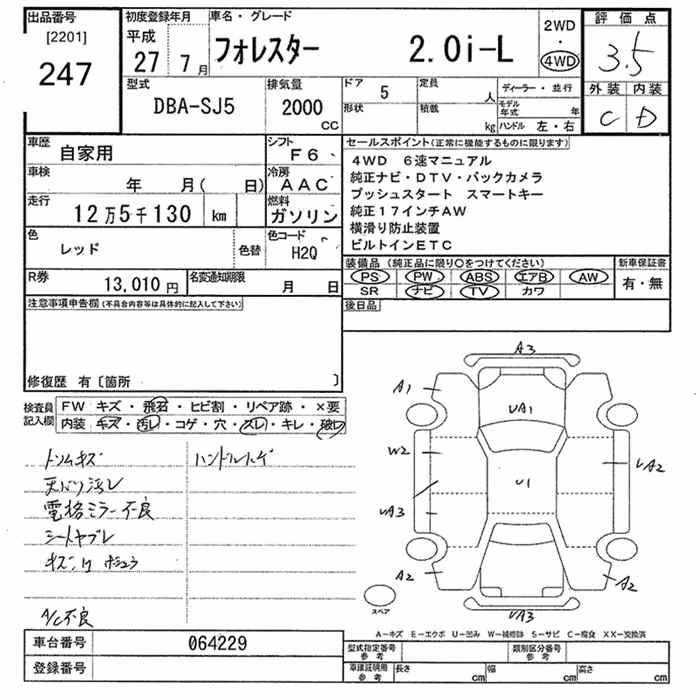 出品番号
[2201]
247
初度登録年月
平成
27 7月
車名・グレード
フォレスター 2.0i-L
2WD
・
4WD
評価点
3.5
外装 内装
C D
型式
DBA-SJ5
排気量
2000
CC
ドア 5
形状
定員 人
積載 kg
ディーラー・並行
モデル年式 年
ハンドル 左・右
車歴
自家用
シフト
F6
車検
年 月( 日)
冷房
AAC
走行
12万5千130 km
燃料
ガソリン
色
レッド
色替
色コード
H2Q
R券
13,010円
名変通知期限
月 日
セールスポイント(正常に機能するものに限ります)
4WD 6速マニュアル
純正ナビ・DTV・バックカメラ
プッシュスタート スマートキー
純正17インチAW
横滑り防止装置
ビルトインETC
装備品(純正品に限り○をつけてください)
PS PW ABS エアB AW
SR ナビ TV カワ
新車保証書
有・無
後日品
注意事項申告欄(不具合内容等は具体的に記入して下さい)
修復歴 有〔箇所 〕
検査員
記入欄
FW キズ・飛石・ヒビ割・リペア跡・×要
内装 キズ・汚レ・コゲ・穴・スレ・キレ・破レ
トリムキズ
ハンドルハゲ
天バリ汚レ
電格ミラー不良
シートヤブレ
A/C不良
A3
A1
UA1
W2
U1
UA2
UA3
A2
A2
UA3
スペア
A-キズ E-エクボ U-凹み W-補修跡 S-サビ C-腐食 XX-交換済
車台番号
064229
登録番号
型式指定番号
参考
類別区分番号
参考
車庫証明用
参考
長さ cm
幅 cm
高さ cm